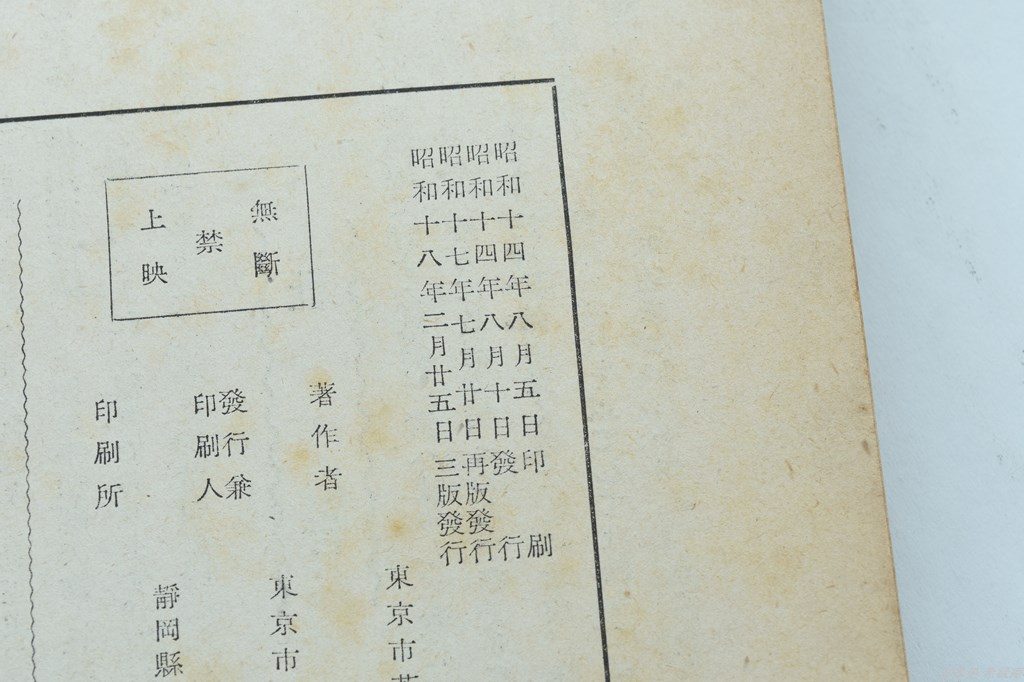 昭和十四年八月五日印刷
昭和十四年八月十日發行
昭和十七年七月廿日再版發行
昭和十八年二月廿五日三版發行
無斷
禁
上映
著作者
東京市
發行兼
印刷人
東京市
印刷所
靜岡縣